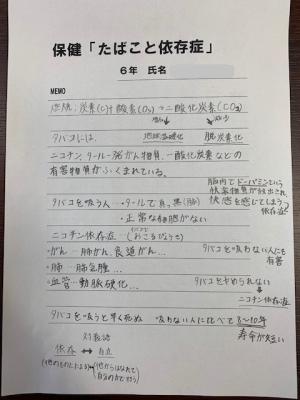 保健「たばこと依存症」
6年 氏名
MEMO
燃焼:炭素(C)+酸素(O₂)→二酸化炭素(CO₂)
増 減少
タバコには、 地球温暖化 脱炭素化
ニコチン、タール…発がん物質、一酸化炭素などの
有害物質がふくまれている。
脳内でドーパミンという
快楽物質が放出され、
快感を感じてしまう
依存症
タバコを吸う人…・タールで真っ黒(肺)
・正常な細胞がない
ニコチン依存症…(おこるびょうき)
・がん…肺がん、食道がん… タバコを吸わない人にも
有害
・肺…肺気腫…
・血管…動脈硬化… タバコをやめられない
ニコチン依存症
タバコを吸うと早く死ぬ 吸わない人に比べて8~10年
寿命が短い
対義語
依存 ↔ 自立
(他のものにたよる) (他からはなれて
自分の力で立つ)